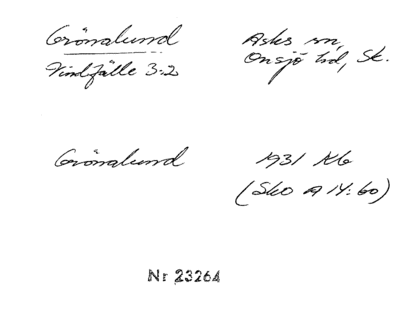 Grönalund Asks sn,
Vindfälle 3:2 Onsjö hd, Sk.
Grönalund 1931 Kb
(Sko A 14:60)
Nr 23264